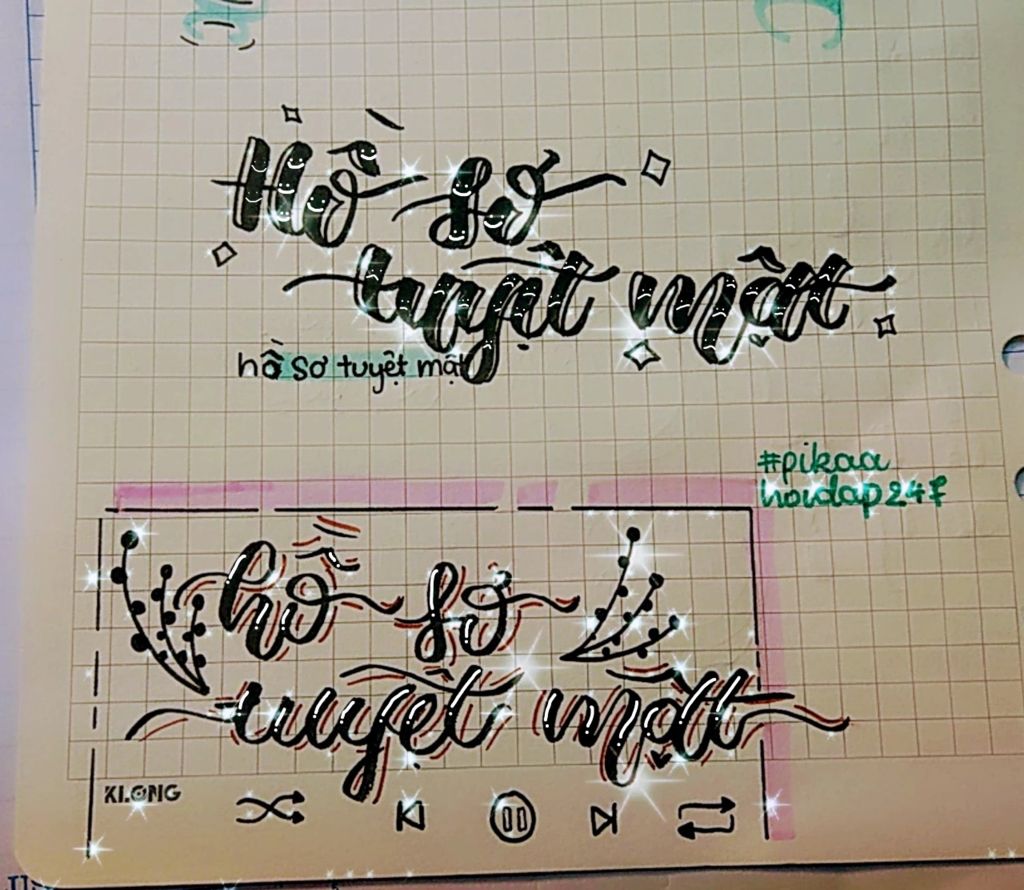 Hồ sơ
tuyệt mật
hồ sơ tuyệt mật
#pikaa
hoidap247
hồ sơ
tuyệt mật
KLONG